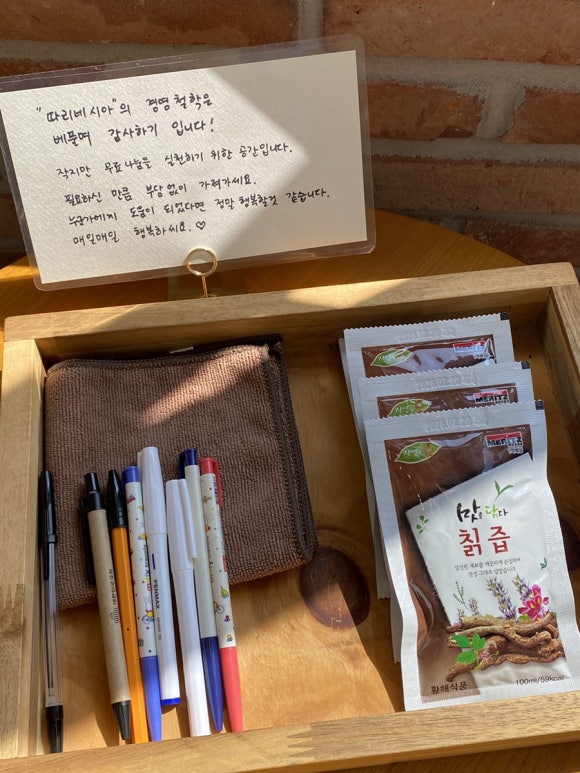 "따리베시아"의 경영철학은
베풀며 감사하기 입니다!
작지만 무료나눔을 실천하기 위한 공간입니다.
필요하신 만큼 부담없이 가져가세요.
누군가에게 도움이 되었다면 정말 행복할것 같습니다.
매일매일 행복하세요. ♡
MERITZ
MERITZ
MERITZ
맛을 담다
칡즙
엄선된 재료를 깨끗하게 손질하여
정성 그대로 담았습니다.
황해식품
100ml/59kcal
PENMAX